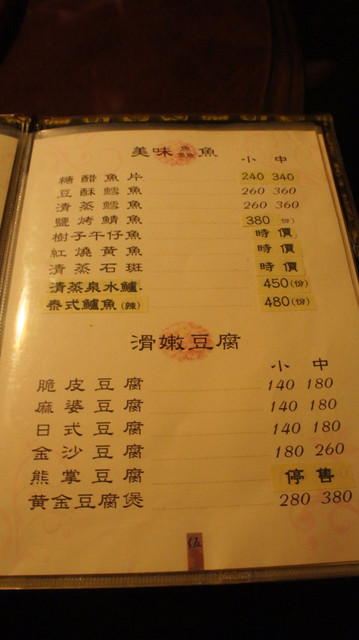 美味魚
小 中
糖醋魚片 240 340
豆酥鱈魚 260 360
清蒸鱈魚 260 360
鹽烤鯖魚 380(份)
樹子午仔魚 時價
紅燒黃魚 時價
清蒸石斑 時價
清蒸泉水鱸. 450(份)
泰式鱸魚(辣) 480(份)
滑嫩豆腐
小 中
脆皮豆腐 140 180
麻婆豆腐 140 180
日式豆腐 140 180
金沙豆腐 180 260
熊掌豆腐 停售
黃金豆腐煲 280 380
伍